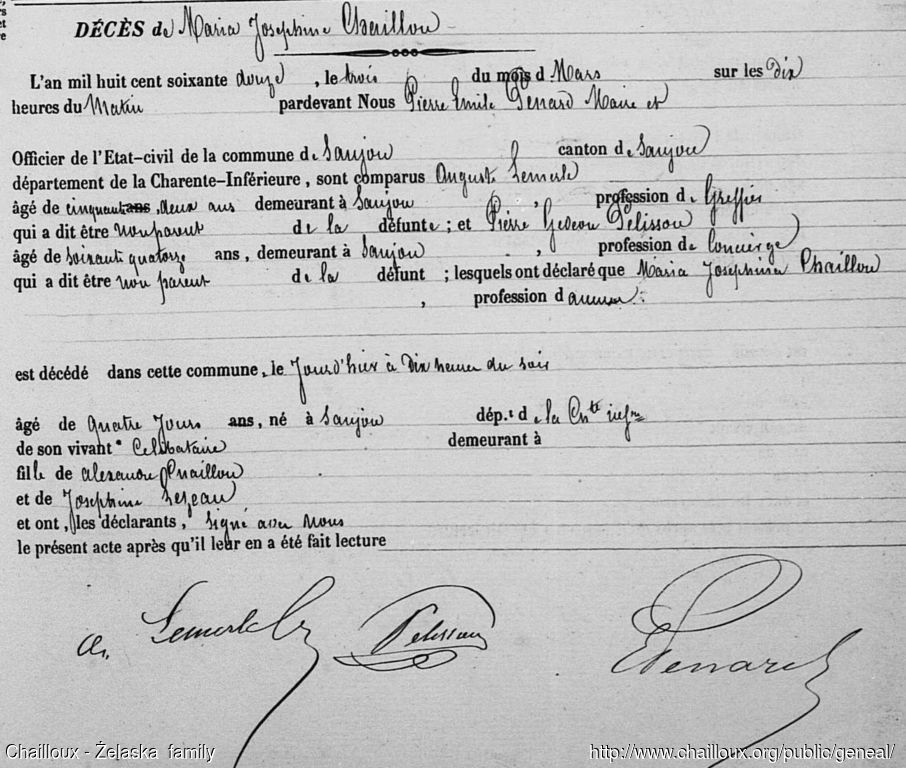 rs
et
re
DÉCÈS de Maria Josephine Chaillou
L'an mil huit cent soixante douze, le trois du mois d Mars sur les Dix
heures du Matin pardevant Nous Pierre Emile Penard Maire et
Officier de l'Etat-civil de la commune de Saujon canton de Saujon
département de la Charente-Inférieure, sont comparus August Lemerle
âgé de cinquant ans, deux ans demeurant à Saujon, profession de Greffier
qui a dit être non parent de la défunte; et Pierre Gedeon Pelisson
âgé de soixante quatorze ans, demeurant à Saujon, profession de Concierge
qui a dit être non parent de la défunt; lesquels ont déclaré que Maria Josephine Chaillou
, profession d aucune.
est décédé dans cette commune, le Jourd'hier à Dix heures du soir
âgé de quatre Jours ans, né à Saujon dép.t de la Ch.te inf.re
de son vivant Celibataire demeurant à
fille de alexandre Chaillou
et de Josephine Lezeau
et ont, les déclarants, signé avec Nous
le présent acte après qu'il leur en a été fait lecture
A. Lemerle Pelisson EPenard
Chailloux - Żelaska family http://www.chailloux.org/public/geneal/